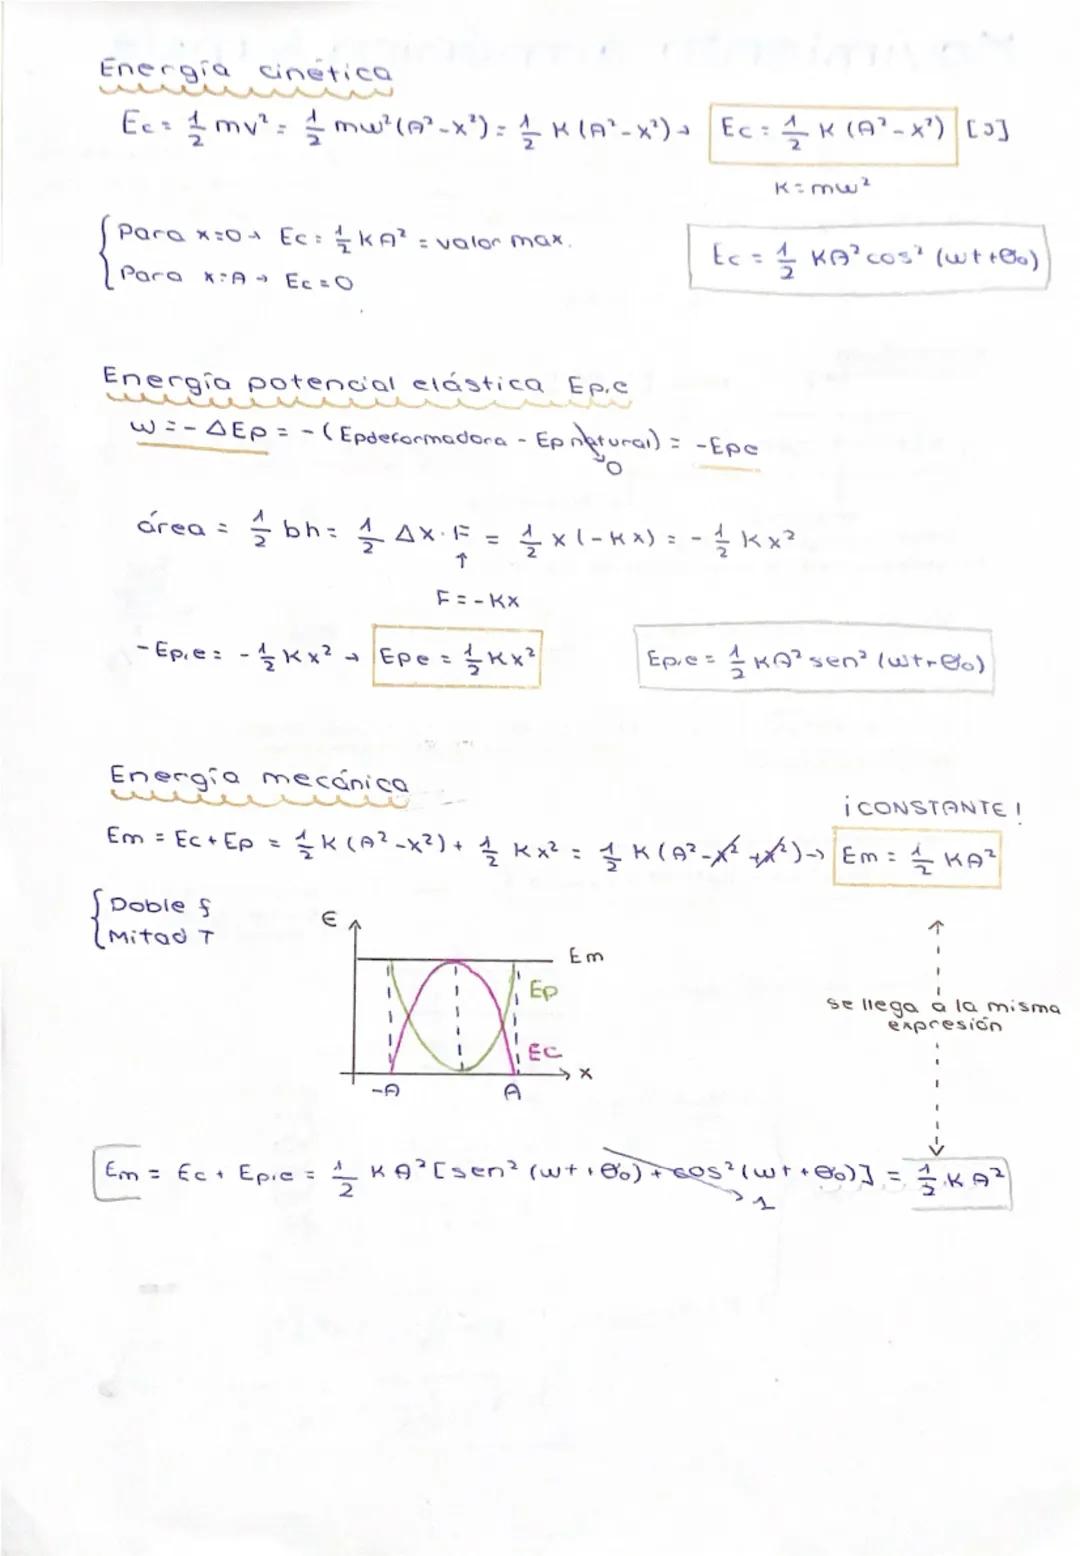 Energía cinética
Ec = 1/2 mv² = 1/2 mw²(A²-x²) = 1/2 K(A²-x²) → Ec = 1/2 K (A²-x²) [J]
K = mw²
Para x=0 → Ec = 1/2 KA² = valor max.
Para x=A → Ec = 0
Ec = 1/2 KA² cos² (wt+θo)
Energía potencial elástica Ep.e
W = - ΔEp = - (Epdeformadora - Ep natural) = -Epe
0
área = 1/2 bh = 1/2 Δx·F = 1/2 x(-Kx) = - 1/2 Kx²
↑
F = -Kx
-Ep.e = - 1/2 Kx² → Epe = 1/2 Kx²
Ep.e = 1/2 KA² sen² (wt+θo)
Energía mecánica
¡CONSTANTE!
Em = Ec + Ep = 1/2 K (A²-x²) + 1/2 Kx² = 1/2 K(A²-x²+x²) → Em = 1/2 KA²
Doble f
Mitad T
E
Em
Ep
Ec
x
-A
A
se llega a la misma
expresión
Em = Ec + Ep.e = 1/2 KA² [sen² (wt+θo) + cos² (wt+θo)] = 1/2 KA²
1